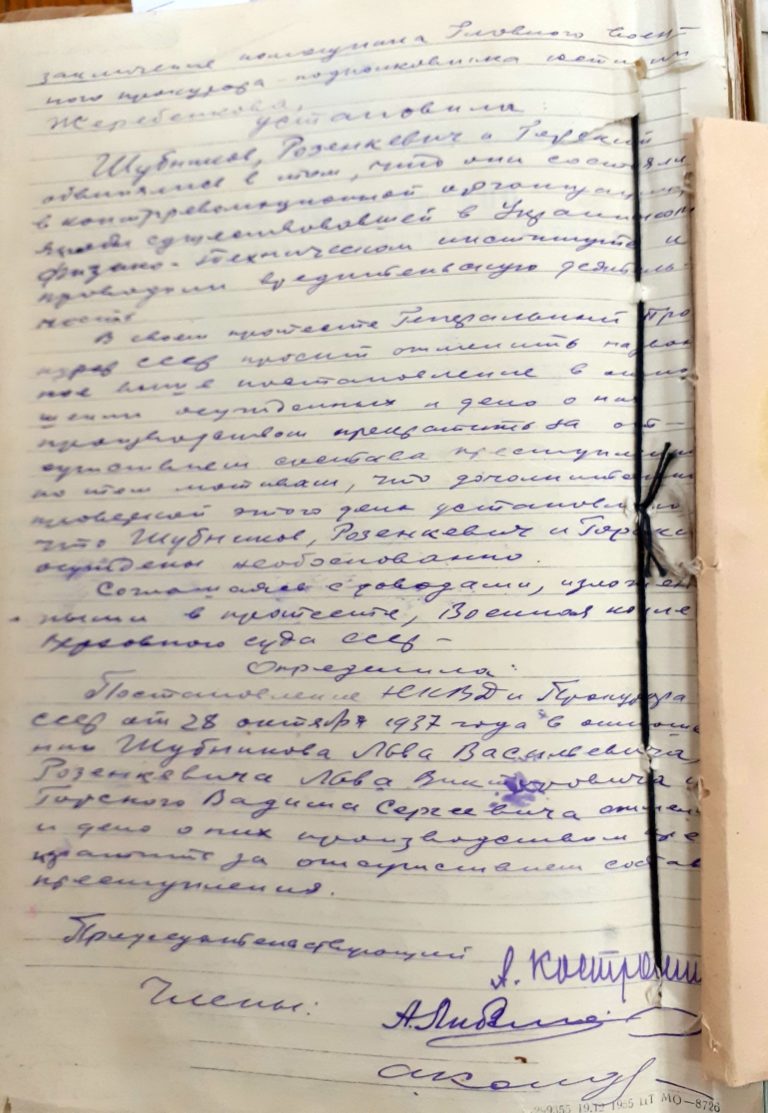 заключение помощника Главного Воен-
ного прокурора подполковника юстиции
Жеребенкова,
установила:
Шубников, Розенкевич и Горский
обвинялись в том, что они состояли
в контрреволюционной организации
якобы существовавшей в Украинском
физико-техническом институте и
проводили вредительскую деятель-
ность.
В своем протесте Генеральный Про
курор СССР просит отменить назван
ное выше постановление в отно
шении осужденных и дело о них
производством прекратить за от-
сутствием состава преступления
по тем мотивам, что дополнительной
проверкой этого дела установлено
что Шубников, Розенкевич и Горский
осуждены необоснованно.
Соглашаясь с доводами, изложен
ными в протесте, Военная колле
Верховного суда СССР –
Определила:
Постановление НКВД и Прокурора
СССР от 28 октября 1937 года в отноше
нии Шубникова Льва Васильевича,
Розенкевича Льва Викторовича и
Горского Вадима Сергеевича отмен
и дело о них производством пре
кратить за отсутствием состав
преступления.
Председательствующий
А. Костромин
Члены:
19.12 1955 МО—8726